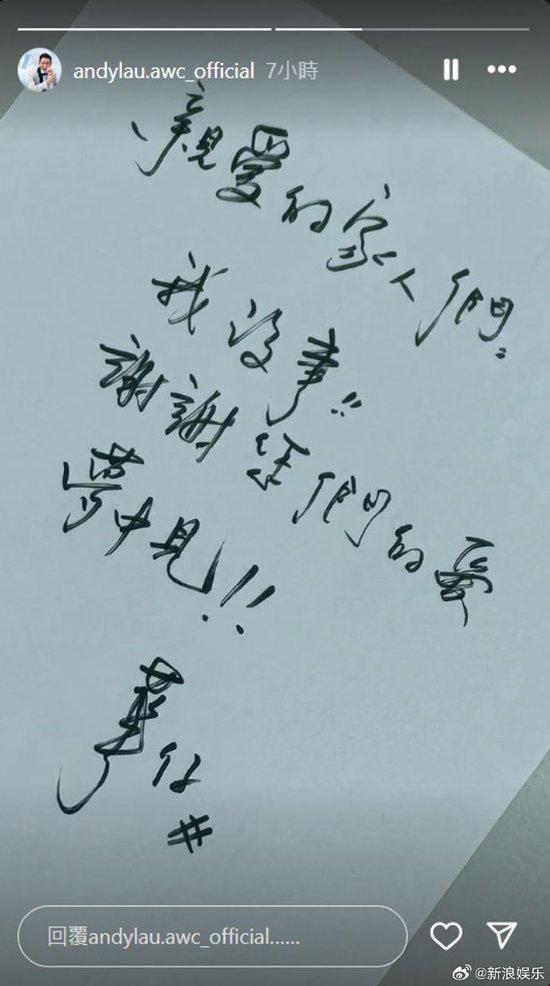 andylau.awc_official 7小時
親愛的家人們:
我沒事!!
謝謝你們的愛
夢中見!!
華仔
#
回覆andylau.awc_official......
@新浪娱乐